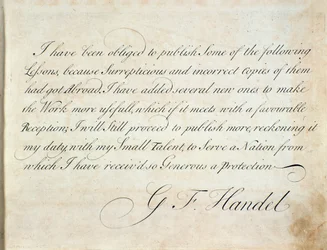 I have been obliged to publish Some of the following
Lessons, because Surrepticious and incorrect Copies of them
had got Abroad. I have added several new ones to make
the Work more usefull, which if it meets with a favourable
Reception; I will Still proceed to publish more, reckoning it
my duty, with my Small Talent, to Serve a Nation from
which I have receiv'd so Generous a Protection
G F. Handel